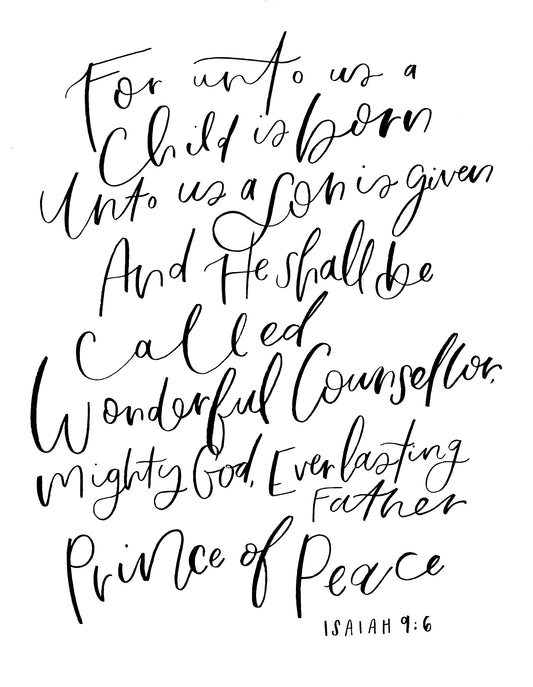 For unto us a
Child is born
Unto us a Son is given
And He shall be
Called
Wonderful Counsellor,
Mighty God, Everlasting
Father
Prince of Peace
ISAIAH 9:6